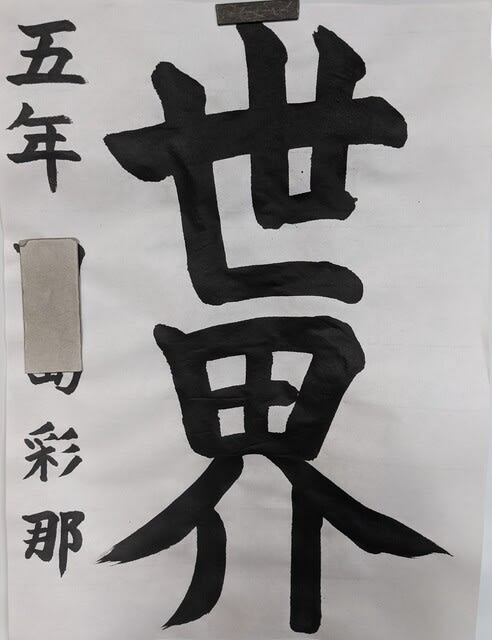 世界
五年 彩那